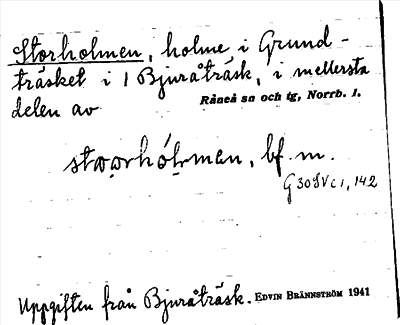 Storholmen, holme i Grund-
träsket i 1 Bjuråträsk, i mellersta
delen av Råneå sn och tg, Norrb. l.
stơọrhó̩ḷmen, bf. m.
G30SVc1, 142
Uppgiften från Bjuråträsk. EDVIN BRÄNNSTRÖM 1941